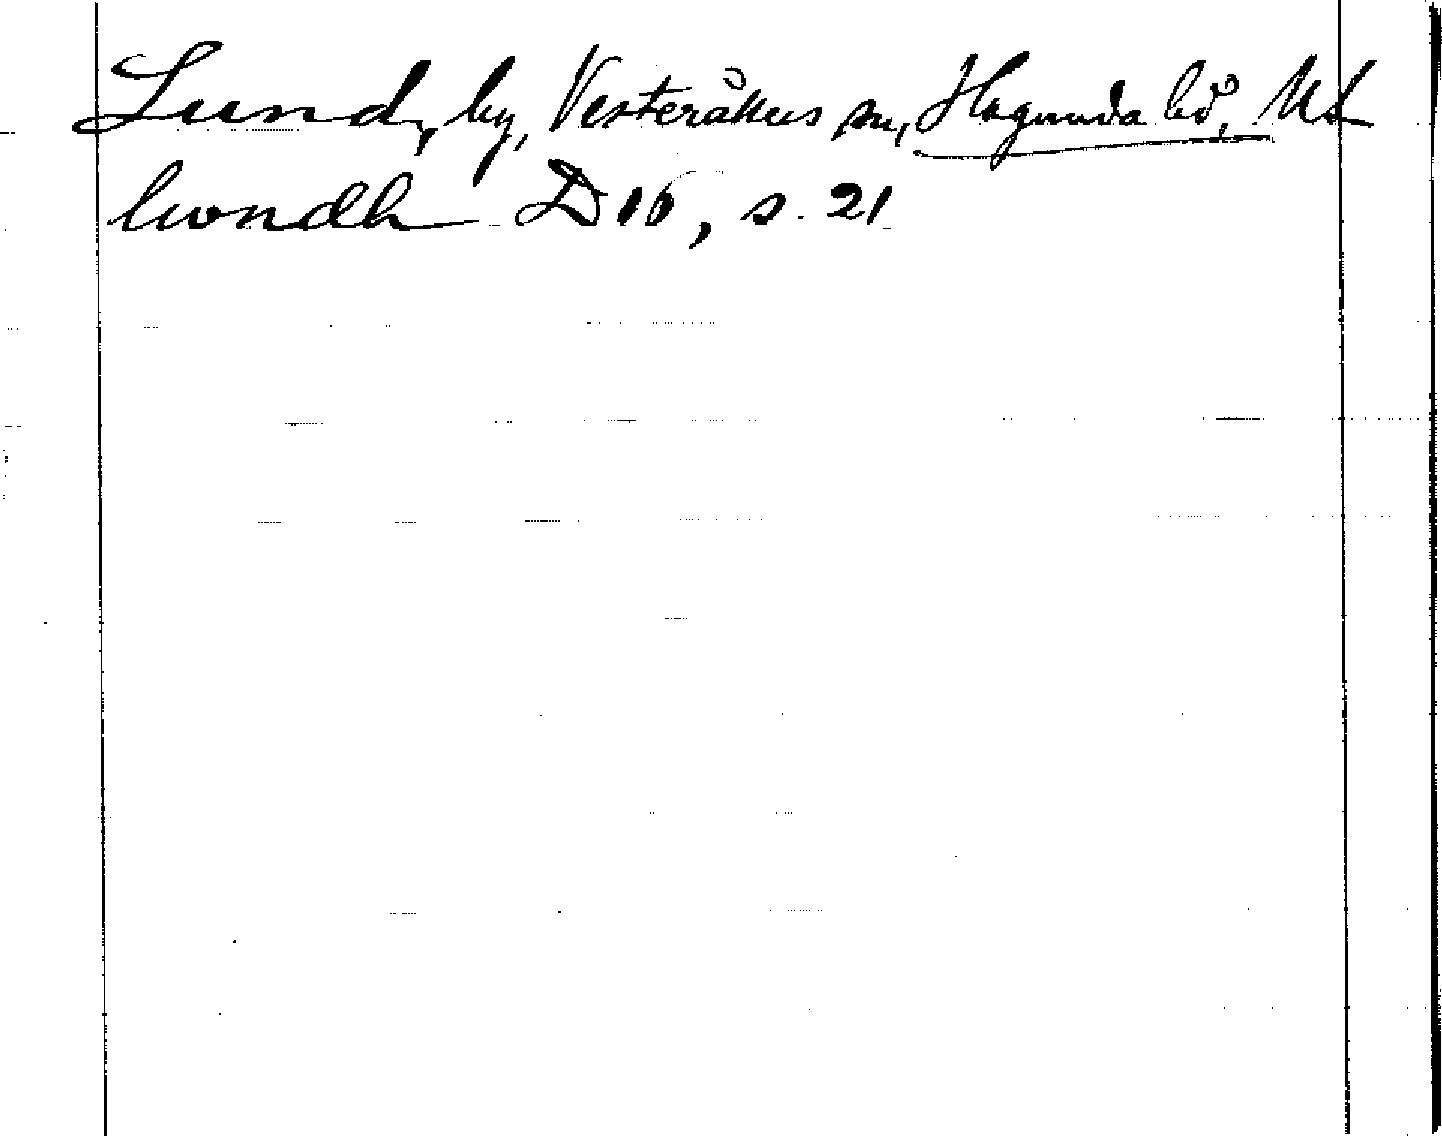 Lund, by, Vesteråkers sn, Hagunda hd, Ul
lwndh D 16, s. 21